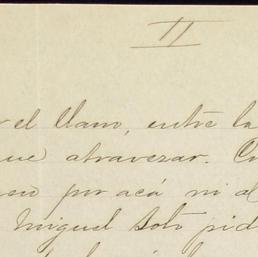 II
el llano, entre la
que atravezar.
por acá ni al
Miguel Soto pid